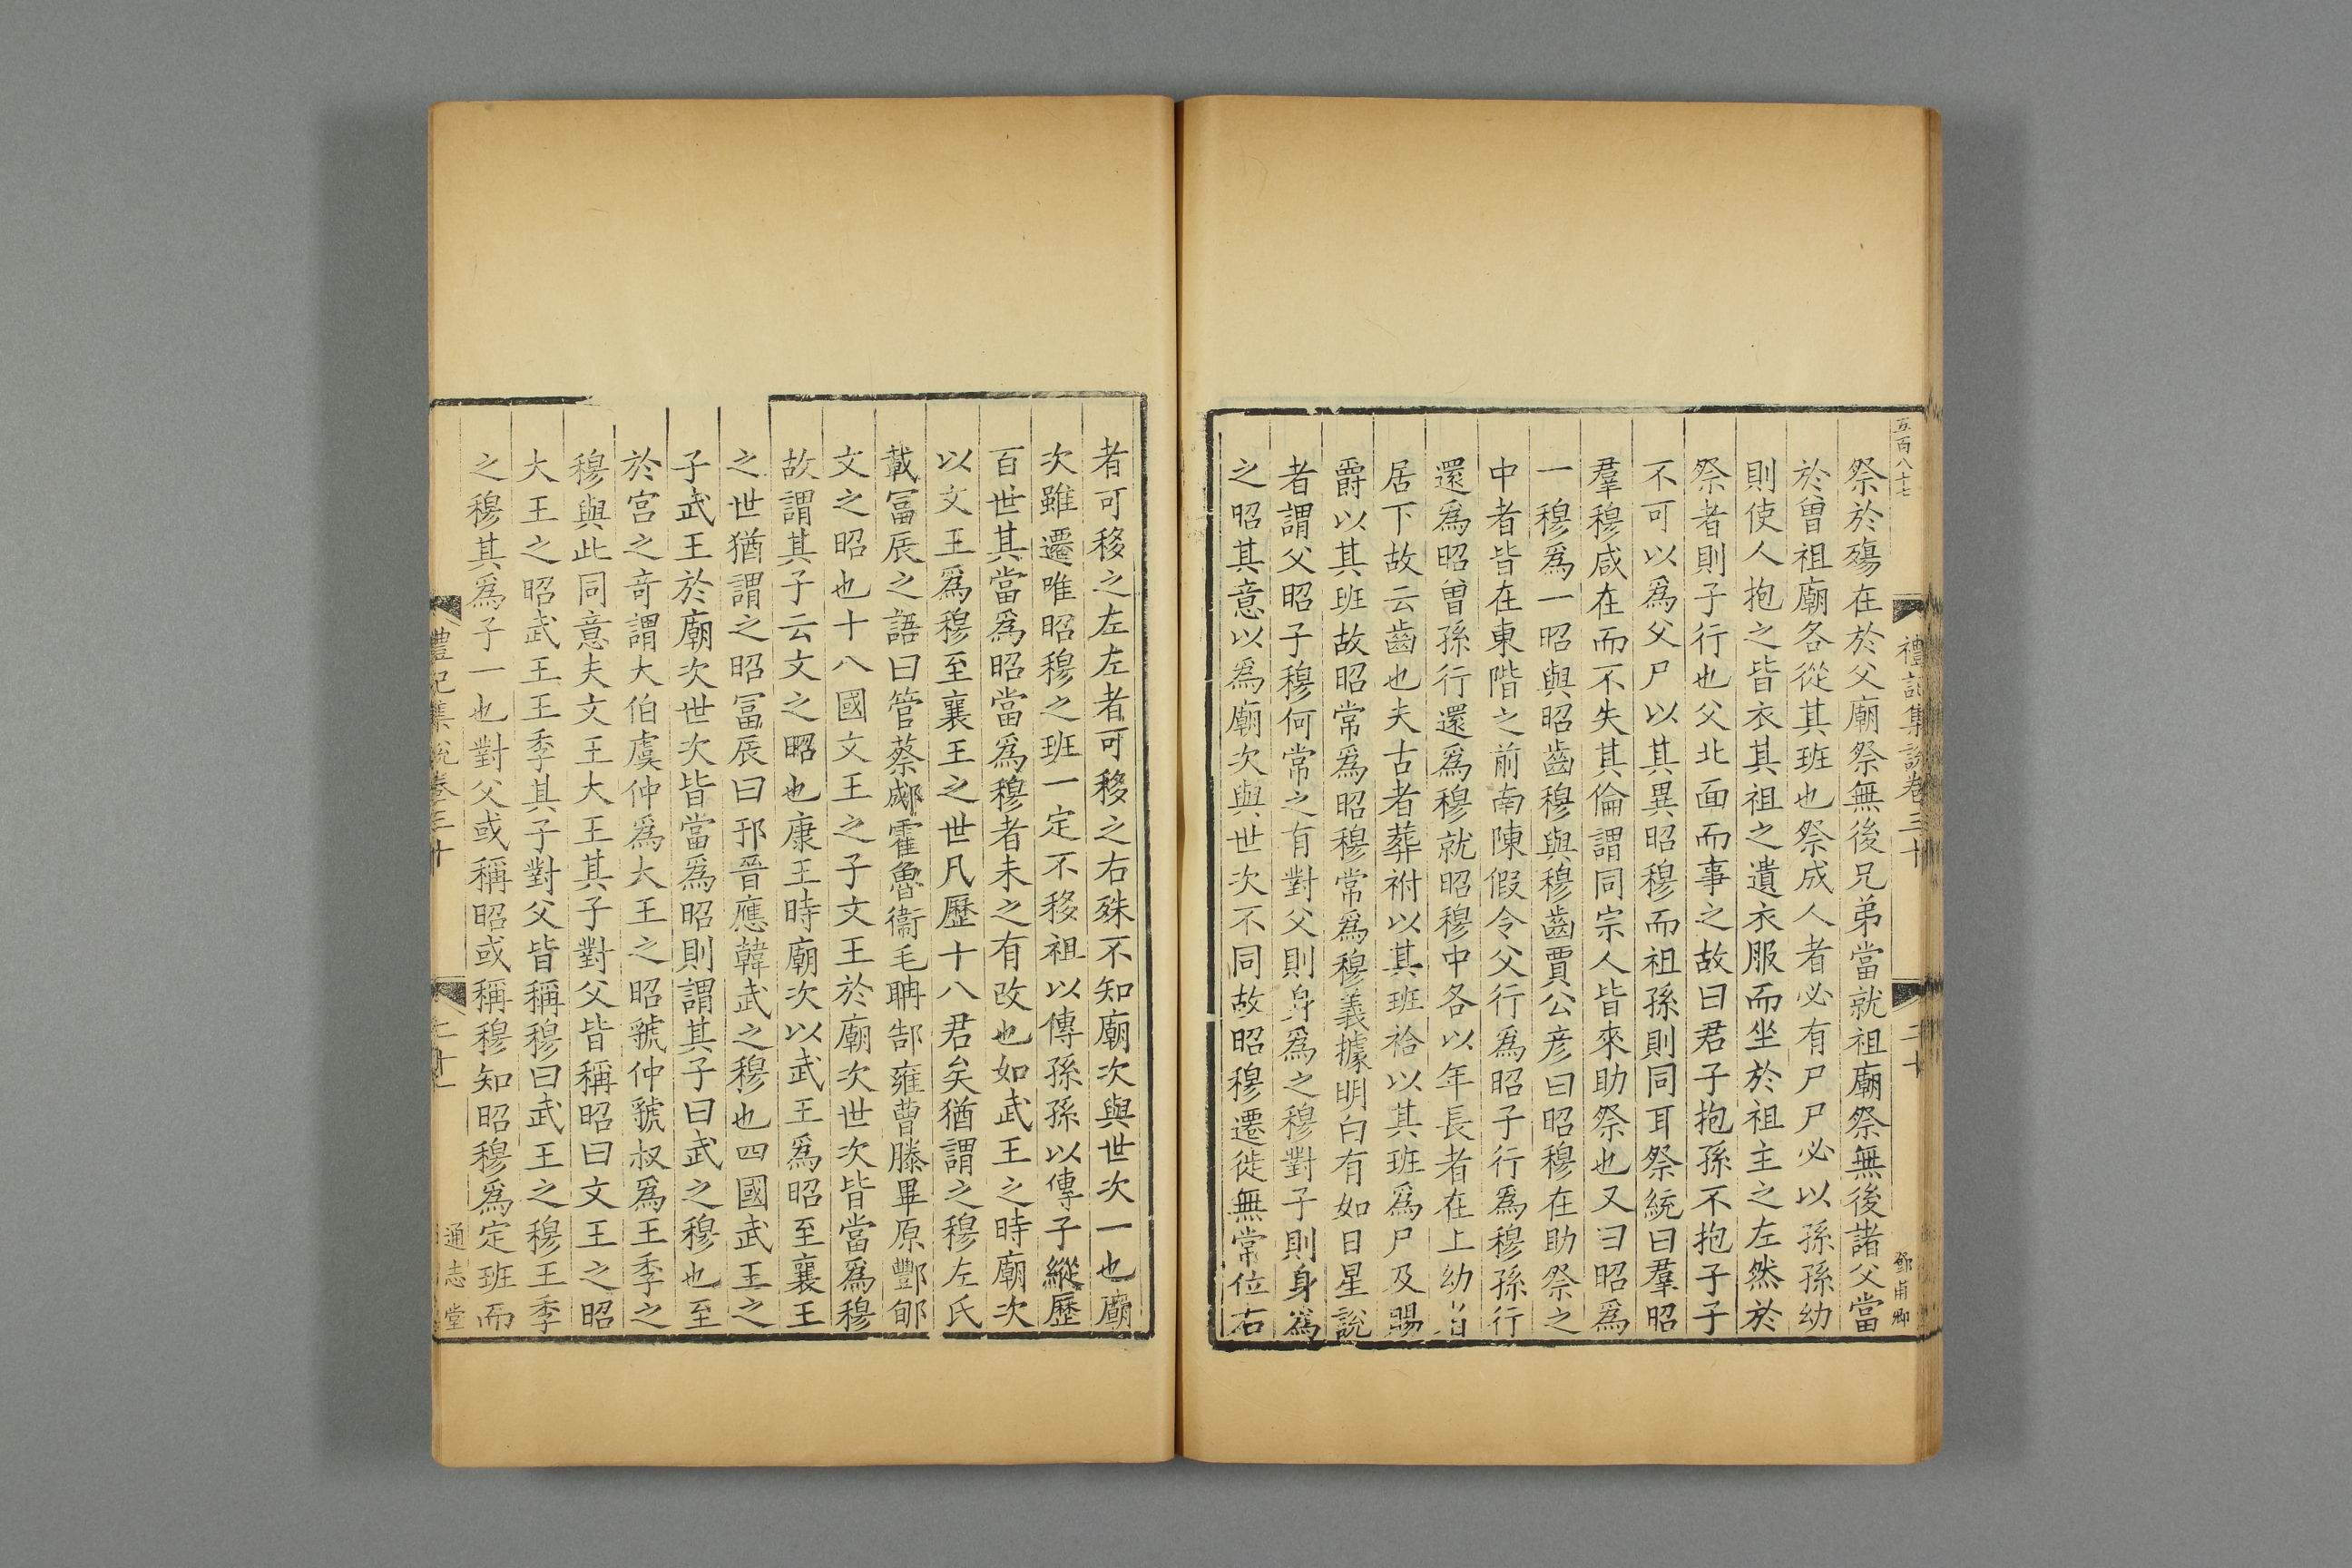 五百八十七
禮記集說卷三十
二十
鄧甫卿
祭於殤在於父廟祭無後兄弟當就祖廟祭無後諸父當
於曾祖廟各從其班也祭成人者必有尸尸必以孫孫幼
則使人抱之皆衣其祖之遺衣服而坐於祖主之左然於
祭者則子行也父北面而事之故曰君子抱孫不抱子子
不可以為父尸以其異昭穆而祖孫則同耳祭統曰羣昭
羣穆咸在而不失其倫謂同宗人皆來助祭也又曰昭為
一穆為一昭與昭齒穆與穆齒賈公彥曰昭穆在助祭之
中者皆在東階之前南陳假令父行為昭子行為穆孫行
還為昭曾孫行還為穆就昭穆中各以年長者在上幼者
居下故云齒也夫古者葬祔以其班祫以其班為尸及賜
爵以其班故昭常為昭穆常為穆義據明白有如日星說
者謂父昭子穆何常之有對父則身為之穆對子則身為
之昭其意以為廟次與世次不同故昭穆遷徙無常位右
者可移之左左者可移之右殊不知廟次與世次一也廟
次雖遷唯昭穆之班一定不移祖以傳孫孫以傳子縱歷
百世其當為昭當為穆者未之有改也如武王之時廟次
以文王為穆至襄王之世凡歷十八君矣猶謂之穆左氏
載冨辰之語曰管蔡郕霍魯衞毛聃郜雍曹滕畢原酆郇
文之昭也十八國文王之子文王於廟次世次皆當為穆
故謂其子云文之昭也康王時廟次以武王為昭至襄王
之世猶謂之昭冨辰曰邘晉應韓武之穆也四國武王之
子武王於廟次世次皆當為昭則謂其子曰武之穆也至
於宮之奇謂大伯虞仲為大王之昭虢仲虢叔為王季之
穆與此同意夫文王大王其子對父皆稱昭曰文王之昭
大王之昭武王王季其子對父皆稱穆曰武王之穆王季
之穆其為子一也對父或稱昭或稱穆知昭穆為定班而
禮記集說卷三十
二十一
通志堂